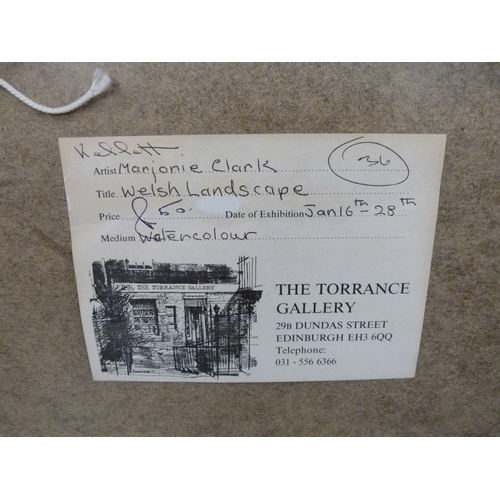 Kellett
36
Artist Marjorie Clark
Title Welsh Landscape
Price £50. Date of Exhibition Jan 16th - 28th
Medium Watercolour
29B THE TORRANCE GALLERY
THE TORRANCE
GALLERY
29B DUNDAS STREET
EDINBURGH EH3 6QQ
Telephone:
031 - 556 6366